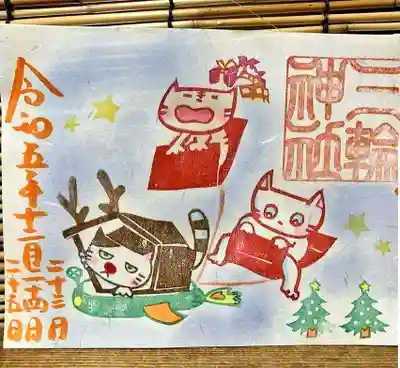 三輪
神社
令和五年十二月
二十三日
二十四日
二十五日